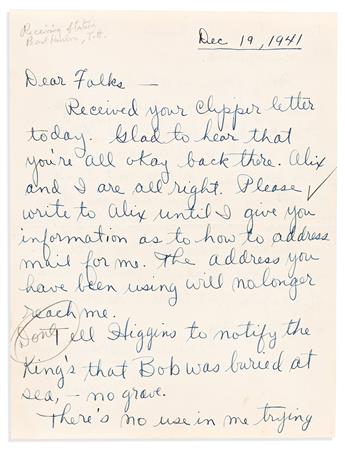 Receiving Station
Pearl Harbor, T.H.
Dec 19, 1941
Dear Folks —
Received your Clipper letter
today. Glad to hear that
you're all okay back there. Alix
and I are all right. Please
write to Alix until I give you
information as to how to address
mail for me. The address you
have been using will no longer
reach me.
Don't tell Higgins to notify the
King's that Bob was buried at
sea, – no grave.
There's no use in me trying